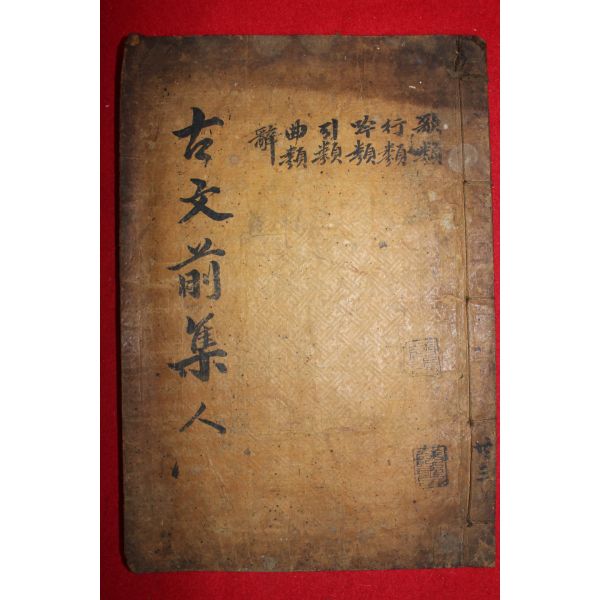 歌類
行類
吟類
引類
曲類
辭
古文前集 人
廿三